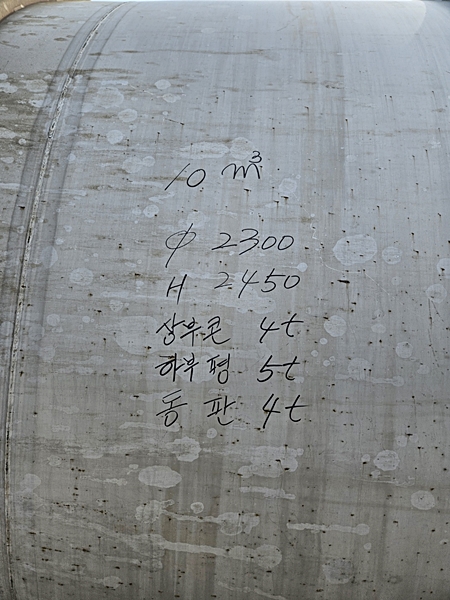 10 m³
φ 2300
H 2450
상부콘 4t
하부평 5t
동판 4t